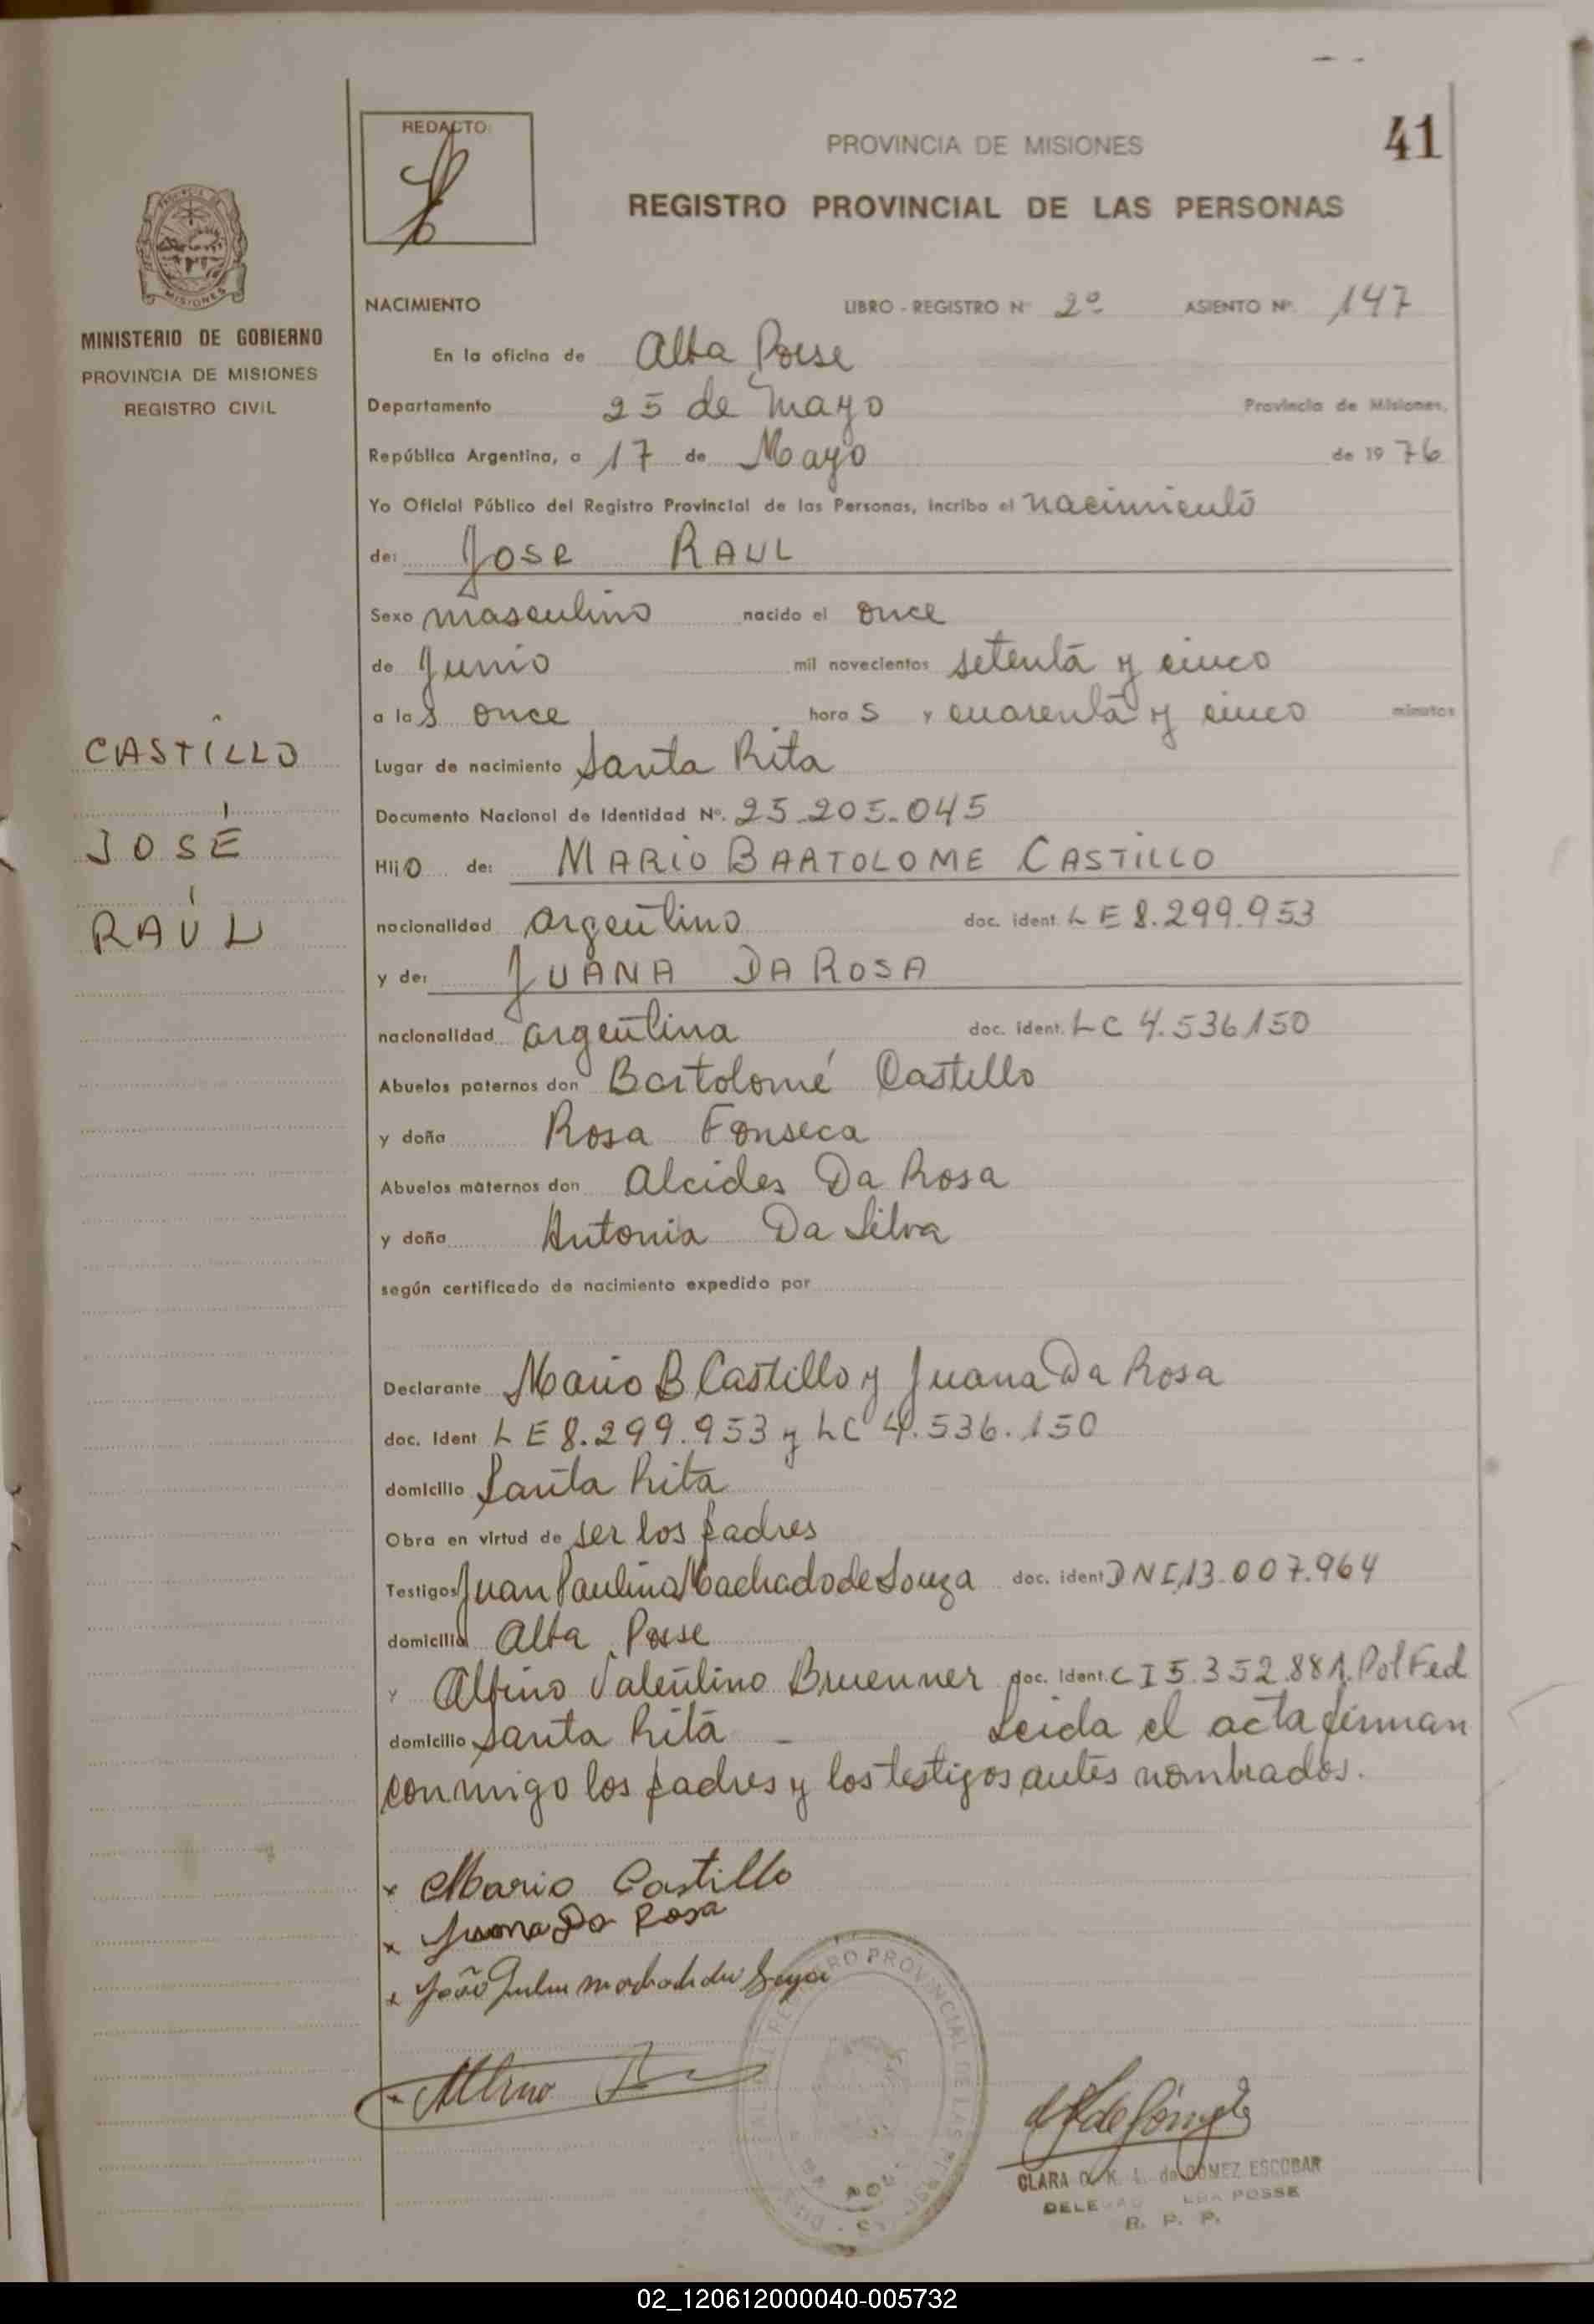 41
REDACTO:
PROVINCIA DE MISIONES
REGISTRO PROVINCIAL DE LAS PERSONAS
MISIONES
MINISTERIO DE GOBIERNO
PROVINCIA DE MISIONES
REGISTRO CIVIL
CASTILLO
JOSÉ
RAÚL
NACIMIENTO LIBRO - REGISTRO Nº 2º ASIENTO Nº. 147
En la oficina de Alba Posse
Departamento 25 de Mayo Provincia de Misiones,
República Argentina, a 17 de Mayo de 1976
Yo Oficial Público del Registro Provincial de las Personas, incribo el nacimiento
de: JOSE RAUL
Sexo masculino nacido el once
de Junio mil novecientos setenta y cinco
a las once horas y cuarenta y cinco minutos
Lugar de nacimiento Santa Rita
Documento Nacional de Identidad Nº. 25.205.045
Hijo de: MARIO BARTOLOME CASTILLO
nacionalidad argentino doc. ident. L E 8.299.953
y de: JUANA DA ROSA
nacionalidad argentina doc. ident. L C 4.536150
Abuelos paternos don Bartolomé Castillo
y doña Rosa Fonseca
Abuelos maternos don Alcides Da Rosa
y doña Antonia Da Silva
según certificado de nacimiento expedido por
Declarante Mario B Castillo y Juana Da Rosa
doc. Ident L E 8.299.953 y L C 4.536.150
domicilio Santa Rita
Obra en virtud de ser los padres
Testigos Juan Paulino Machado de Souza doc. ident DNI 13.007.964
domicilio Alba Posse
y Albino Valentino Bruenner doc. Ident. C I 5.352.881. Pol Fed
domicilio Santa Rita - Leida el acta firman
conmigo los padres y los testigos antes nombrados.
x Mario Castillo
x Juana Da Rosa
x João
x Albino
REGISTRO PROVINCIAL DE LAS PERSONAS
CLARA de GOMEZ ESCOBAR
POSSE
R. P. P.
02_120612000040-005732